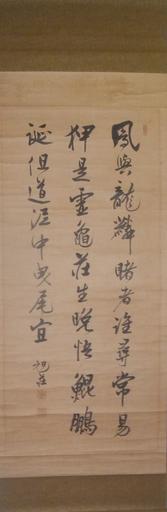 鳳與龍麟睹者誰尋常易
狎是靈龜莊生晚悟鯤鵬
誕但道泥中曳尾宜 旭莊